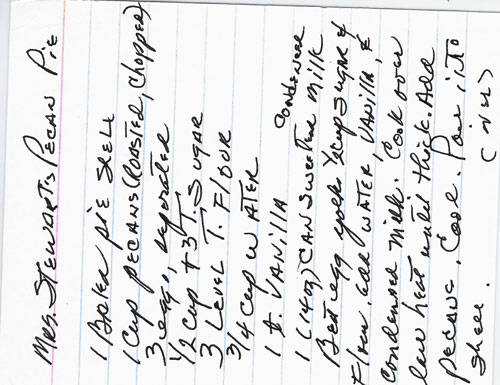 Mrs. Stewart's Pecan Pie
1 Baked pie shell
1 Cup pecans (roasted, chopped)
3 eggs, seperated
1/2 cup + 3 T. Sugar
3 Level T. Flour
3/4 Cup Water
1 t. Vanilla
1 (14oz) Can Sweetened Condensed Milk
Beat egg yolks, 1/2 cup sugar &
flour, add water, vanilla, &
condensed milk. Cook over
low heat until thick. Add
pecans. Cool. Pour into
shell. (over)